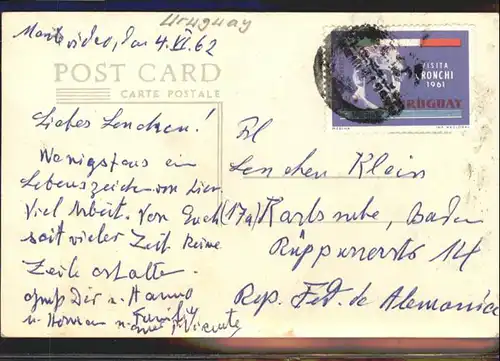 Uruguay
Montevideo, den 4.VI.62
POST CARD
CARTE POSTALE
VISITA
GRONCHI
1961
URUGUAY
Liebes Lenchen!
Wenigstens ein
Lebenszeichen von hier.
Viel Arbeit. Von Euch
seit vieler Zeit keine
Zeile erhalten.
Gruß Dir u. Hanno
u. Herman u. Familie
Vicente
Frl
Lenchen Klein
(17a) Karlsruhe, Baden
Rüppurrerstr. 14
Rep. Fed. de Alemania